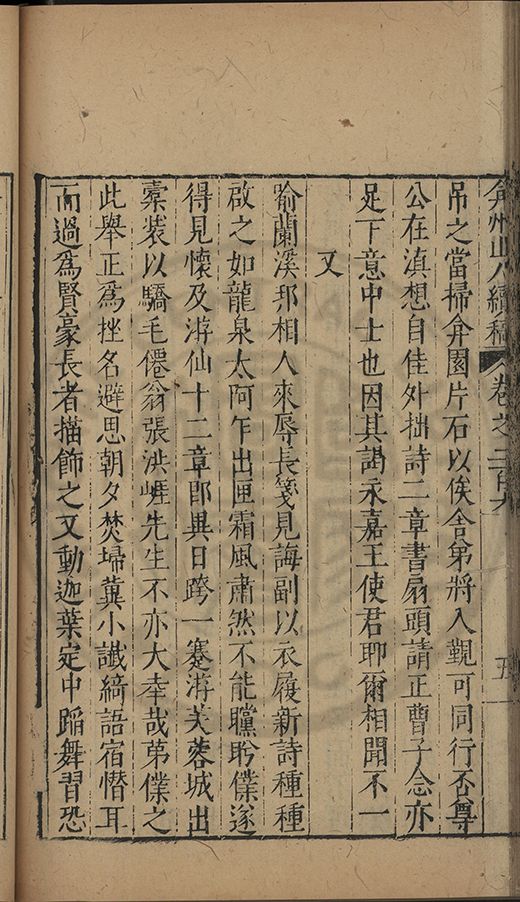 弇州山人續稿 卷之二百六 五
吊之當掃弇園片石以俟舍弟將入覲可同行否尊
公在滇想自佳外拙詩二章書扇頭請正曹子念亦
足下意中士也因其謁永嘉王使君聊爾相聞不一
又
喻蘭溪邦相人來辱長箋見誨副以衣履新詩種種
啟之如龍泉太阿乍出匣霜風肅然不能矘盻僕遂
得見懷及游仙十二章即異日跨一蹇游芙蓉城出
橐裝以驕毛僊翁張洪崕先生不亦大幸哉第僕之
此舉正為挫名避思朝夕焚埽冀小讖綺語宿憯耳
而過為賢豪長者描飾之又動迦葉定中蹈舞習恐